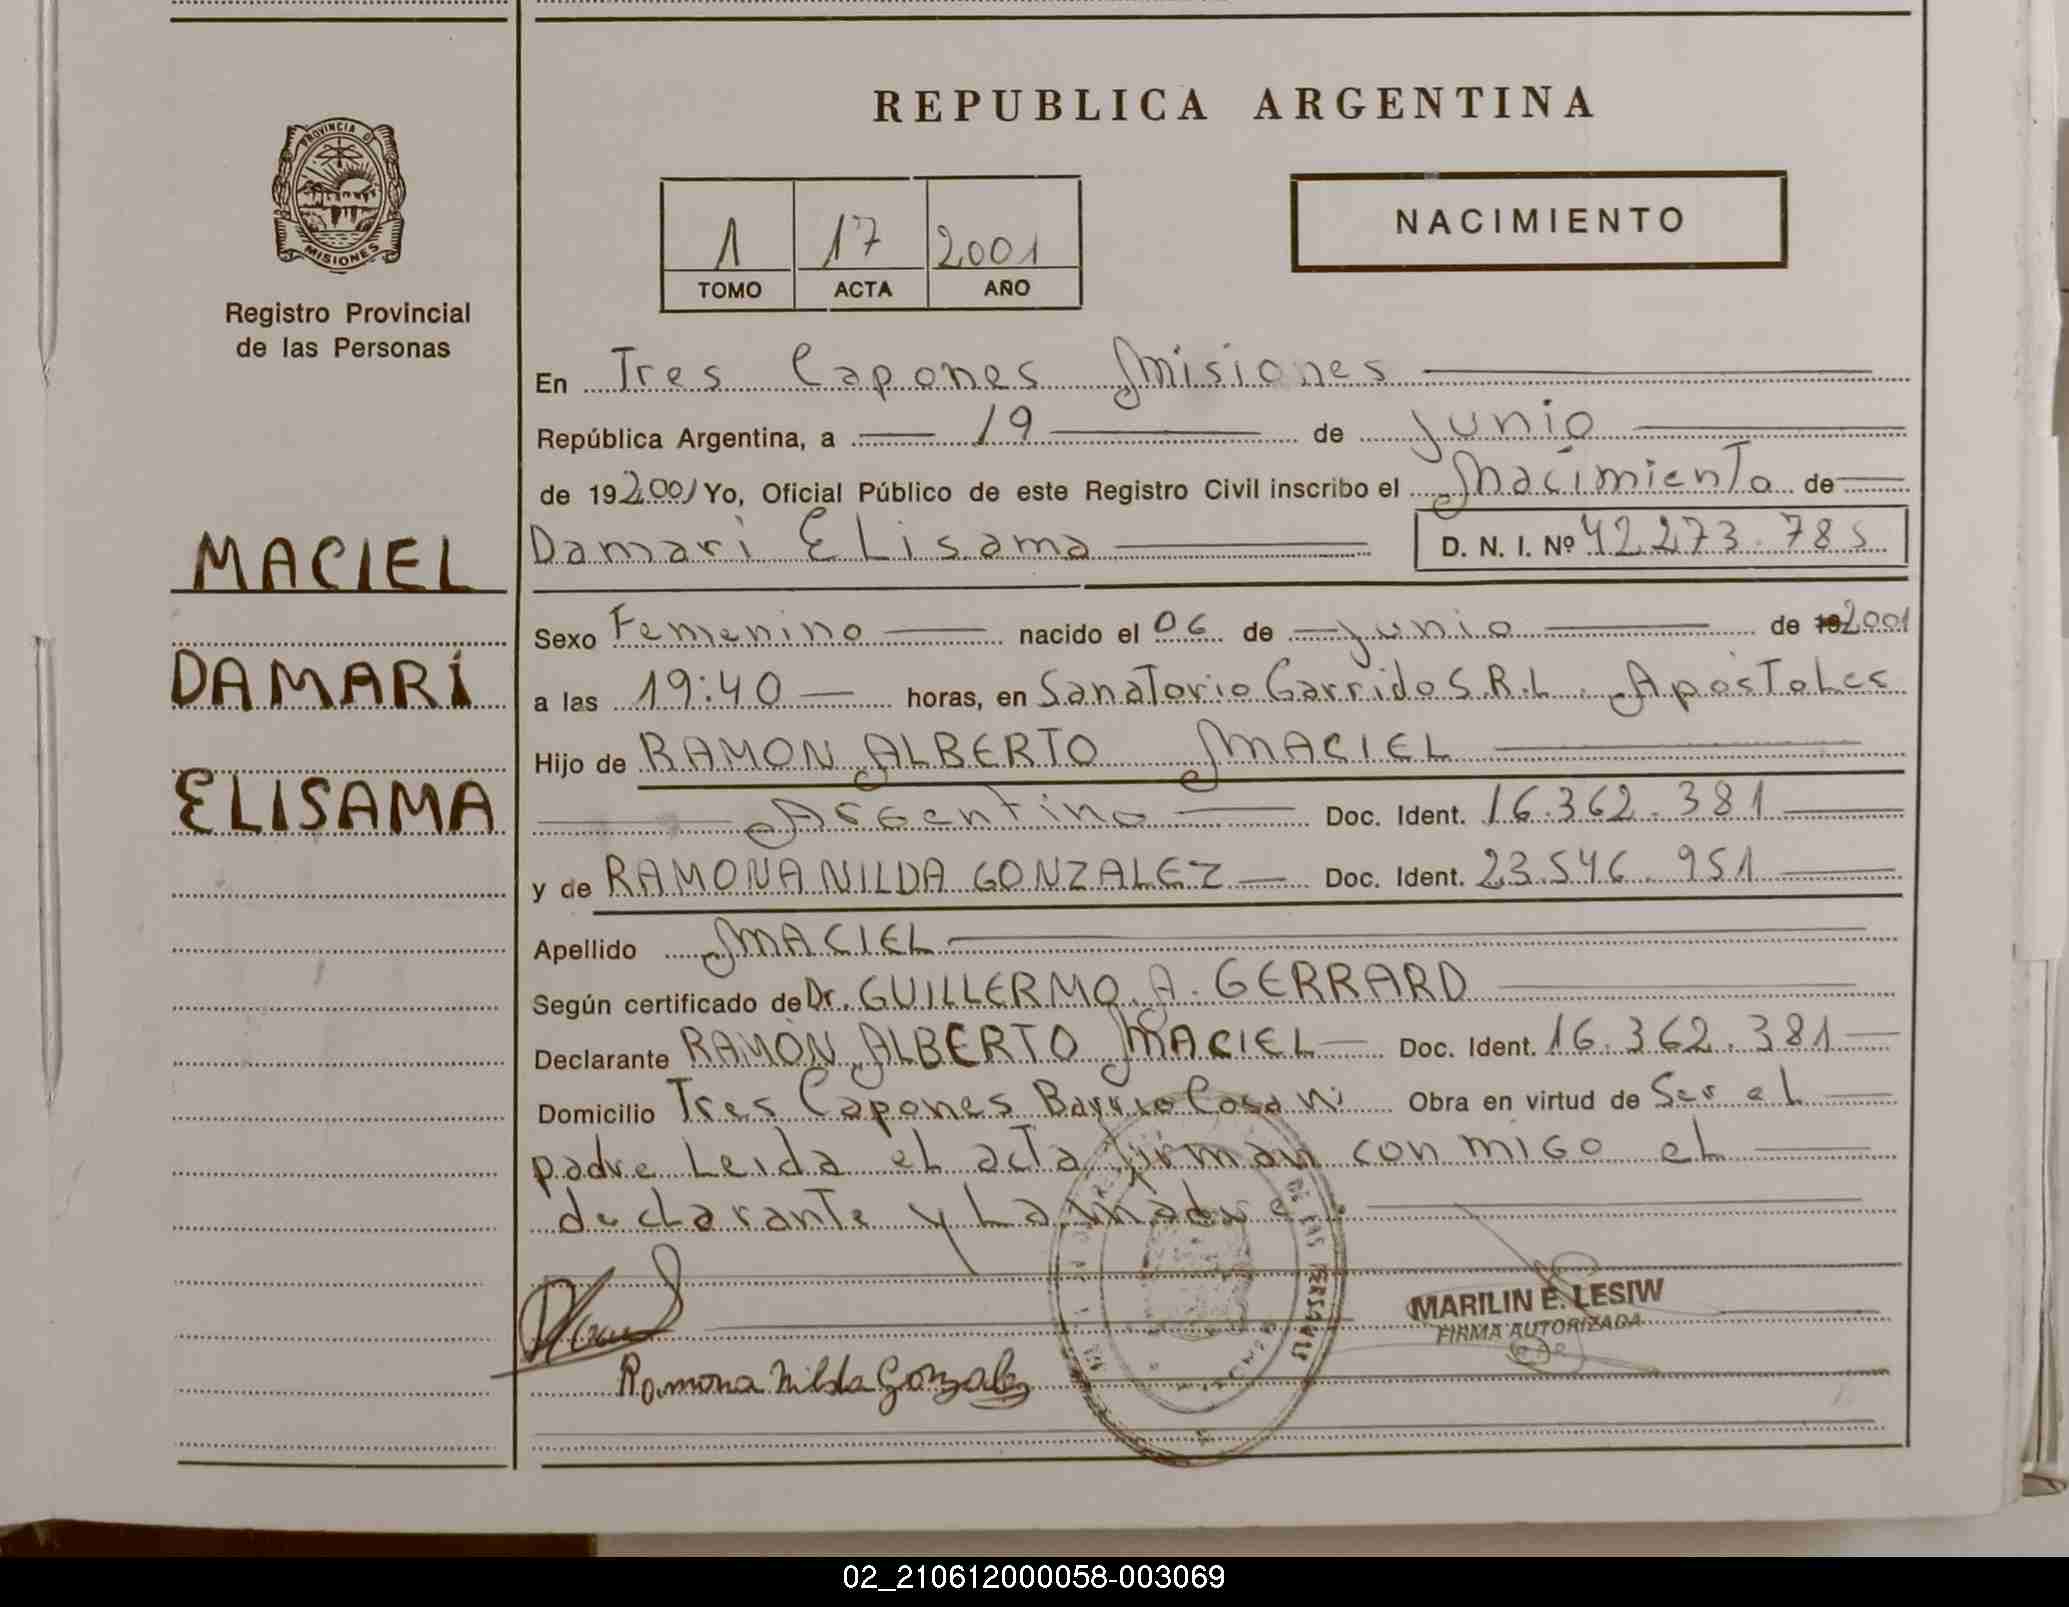 REPUBLICA ARGENTINA
PROVINCIA DE
MISIONES
Registro Provincial
de las Personas
1 17 2001
TOMO ACTA AÑO
NACIMIENTO
MACIEL
DAMARÍ
ELISAMA
En Tres Capones Misiones
República Argentina, a 19 de junio
de 192001 Yo, Oficial Público de este Registro Civil inscribo el Nacimiento de
Damarí Elisama D. N. I. Nº 42.273.785
Sexo Femenino nacido el 06 de junio de 192001
a las 19:40 horas, en Sanatorio Garrido S.R.L. Apóstoles
Hijo de RAMON ALBERTO MACIEL
Argentino Doc. Ident. 16.362.381
y de RAMONA NILDA GONZALEZ Doc. Ident. 23.546.951
Apellido MACIEL
Según certificado de Dr. GUILLERMO A. GERRARD
Declarante RAMÓN ALBERTO MACIEL Doc. Ident. 16.362.381
Domicilio Tres Capones Barrio Obra en virtud de Ser el
padre Leida el acta firman con migo el
declarante y La madre.
MARILIN E. LESIW
FIRMA AUTORIZADA
Ramona Nilda Gonzalez
02_210612000058-003069